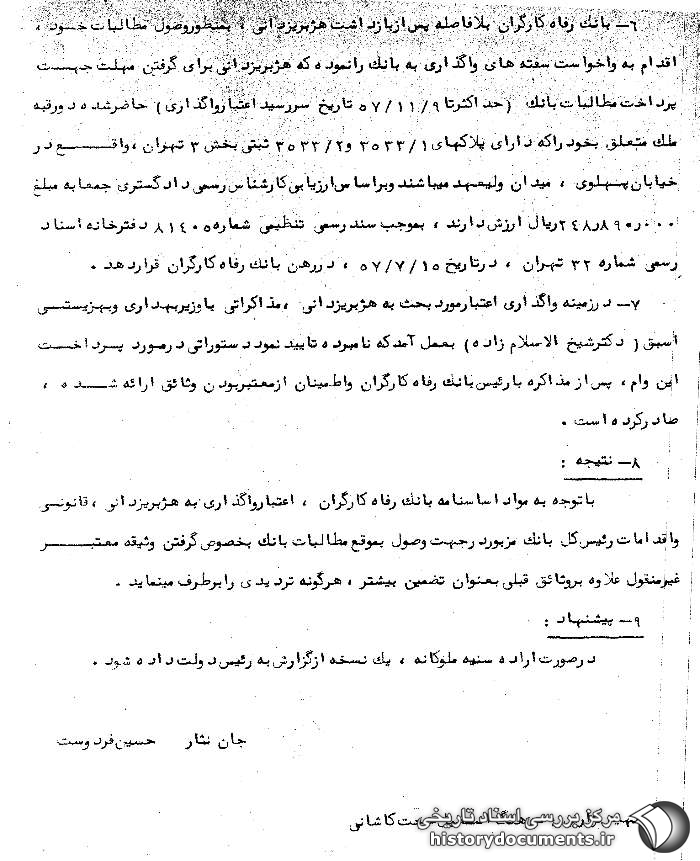 ۶- بانک رفاه کارگران بلافاصله پس از بازداشت هژبر یزدانی ، بمنظور وصول مطالبات خود ،
اقدام به واخواست سفته های واگذاری به بانک را نموده که هژبر یزدانی برای گرفتن مهلت جهت
پرداخت مطالبات بانک (حداکثر تا ۵۷/۱۱/۹ تاریخ سررسید اعتبار واگذاری) حاضر شده دو رقبه
ملک متعلق بخود را که دارای پلاکهای ۳۵۳۳/۱ و ۳۵۳۳/۲ ثبتی بخش ۳ تهران ، واقع در
خیابان پهلوی ، میدان ولیعهد میباشند و بر اساس ارزیابی کارشناس رسمی دادگستری جمعا به مبلغ
۲۴۸ر۸۹۰ر۰۰۰ ریال ارزش دارند ، بموجب سند رسمی تنظیمی شماره ۸۱۴۰۵ دفترخانه اسناد
رسمی شماره ۳۲ تهران ، در تاریخ ۵۷/۷/۱۵ ، در رهن بانک رفاه کارگران قرار دهد .
۷- در زمینه واگذاری اعتبار مورد بحث به هژبر یزدانی ، مذاکراتی با وزیر بهداری و بهزیستی
اسبق ( دکتر شیخ الاسلام زاده ) بعمل آمد که نامبرده تایید نمود دستوراتی در مورد پرداخت
این وام ، پس از مذاکره با رئیس بانک رفاه کارگران و اطمینان از معتبر بودن وثائق ارائه شده ،
صادر کرده است .
۸- نتیجه :
با توجه به مواد اساسنامه بانک رفاه کارگران ، اعتبار واگذاری به هژبر یزدانی ، قانونی
و اقدامات رئیس کل بانک مزبور در جهت وصول بموقع مطالبات بانک بخصوص گرفتن وثیقه معتبر
غیر منقول علاوه بر وثائق قبلی بعنوان تضمین بیشتر ، هرگونه تردیدی را برطرف مینماید .
۹- پیشنهاد :
در صورت اراده سنیه ملوکانه ، یک نسخه از گزارش به رئیس دولت داده شود .
جان نثار حسین فردوست
کاشانی
مرکز بررسی اسناد تاریخی
historydocuments.ir